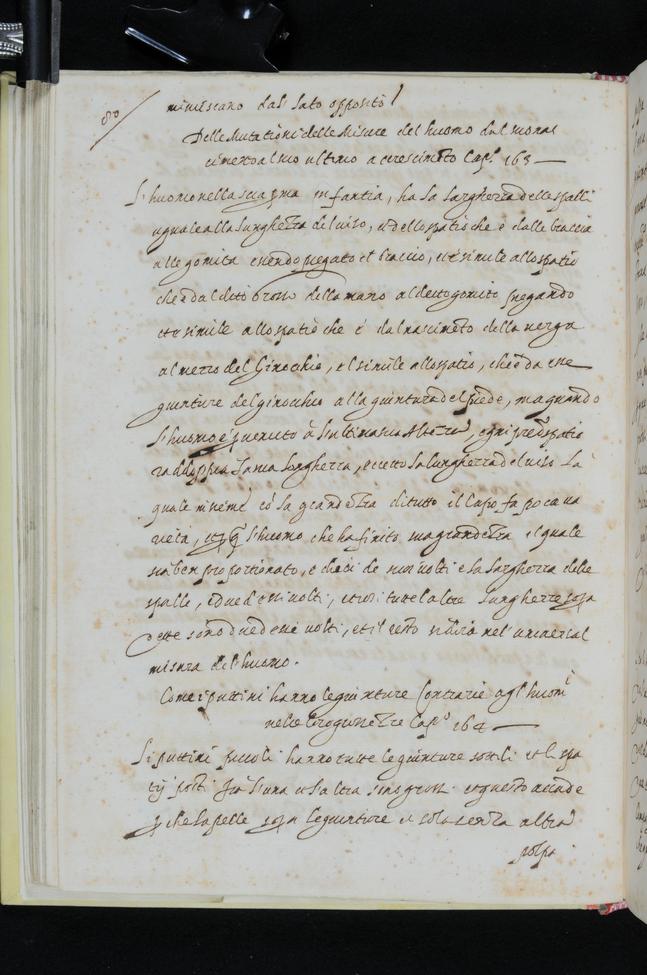 80
minuiscano dal lato opposito
Delle Mutationi delle Misure del huomo dal suo nas
cimento al suo ultimo accrescimeto Cap.º 163
L'huomo nella sua pma infantia, ha la larghezza delle spalle
uguale alla lunghezza del uiso, et dello spatio che è dalle braccia
alle gomita essendo piegato il braccio, et è simile allo spatio
che è dal dito grosso della mano al detto gomito piegando
et è simile allo spatio che è dal nascimeto della uerga
al mezzo del Ginochio, et è simile allo spatio, che è da esse
giunture del ginocchio alla giuntura del piede, ma quando
l'huomo è peruenuto à l'ultima sua Altezza, ogni predto spatio
raddoppia la sua longhezza, eccetto la lunghezza del uiso la
quale insieme co la grandezza di tutto il Capo fa poca ua
rietà, et p l'huomo che ha finito sua grandezza il quale
sia ben proportionato, è dieci de suoi uolti e la larghezza delle
spalle, è due de essi uolti, et così tutte l'altre lunghezze sopa
dette sono due desse uolti, et il resto si dirà nel' uniuersal
misura dell'huomo.
Come i puttini hanno le giunture Contrarie agl'huomi
nelle loro grossezze Cap.º 164
Li puttini piccoli hanno tutte le giunture sottili et li spa
tij posti frà l'una et l'altra sono grossi et questo accade
p che la pelle sopa le giunture è sola senza altra
polpa